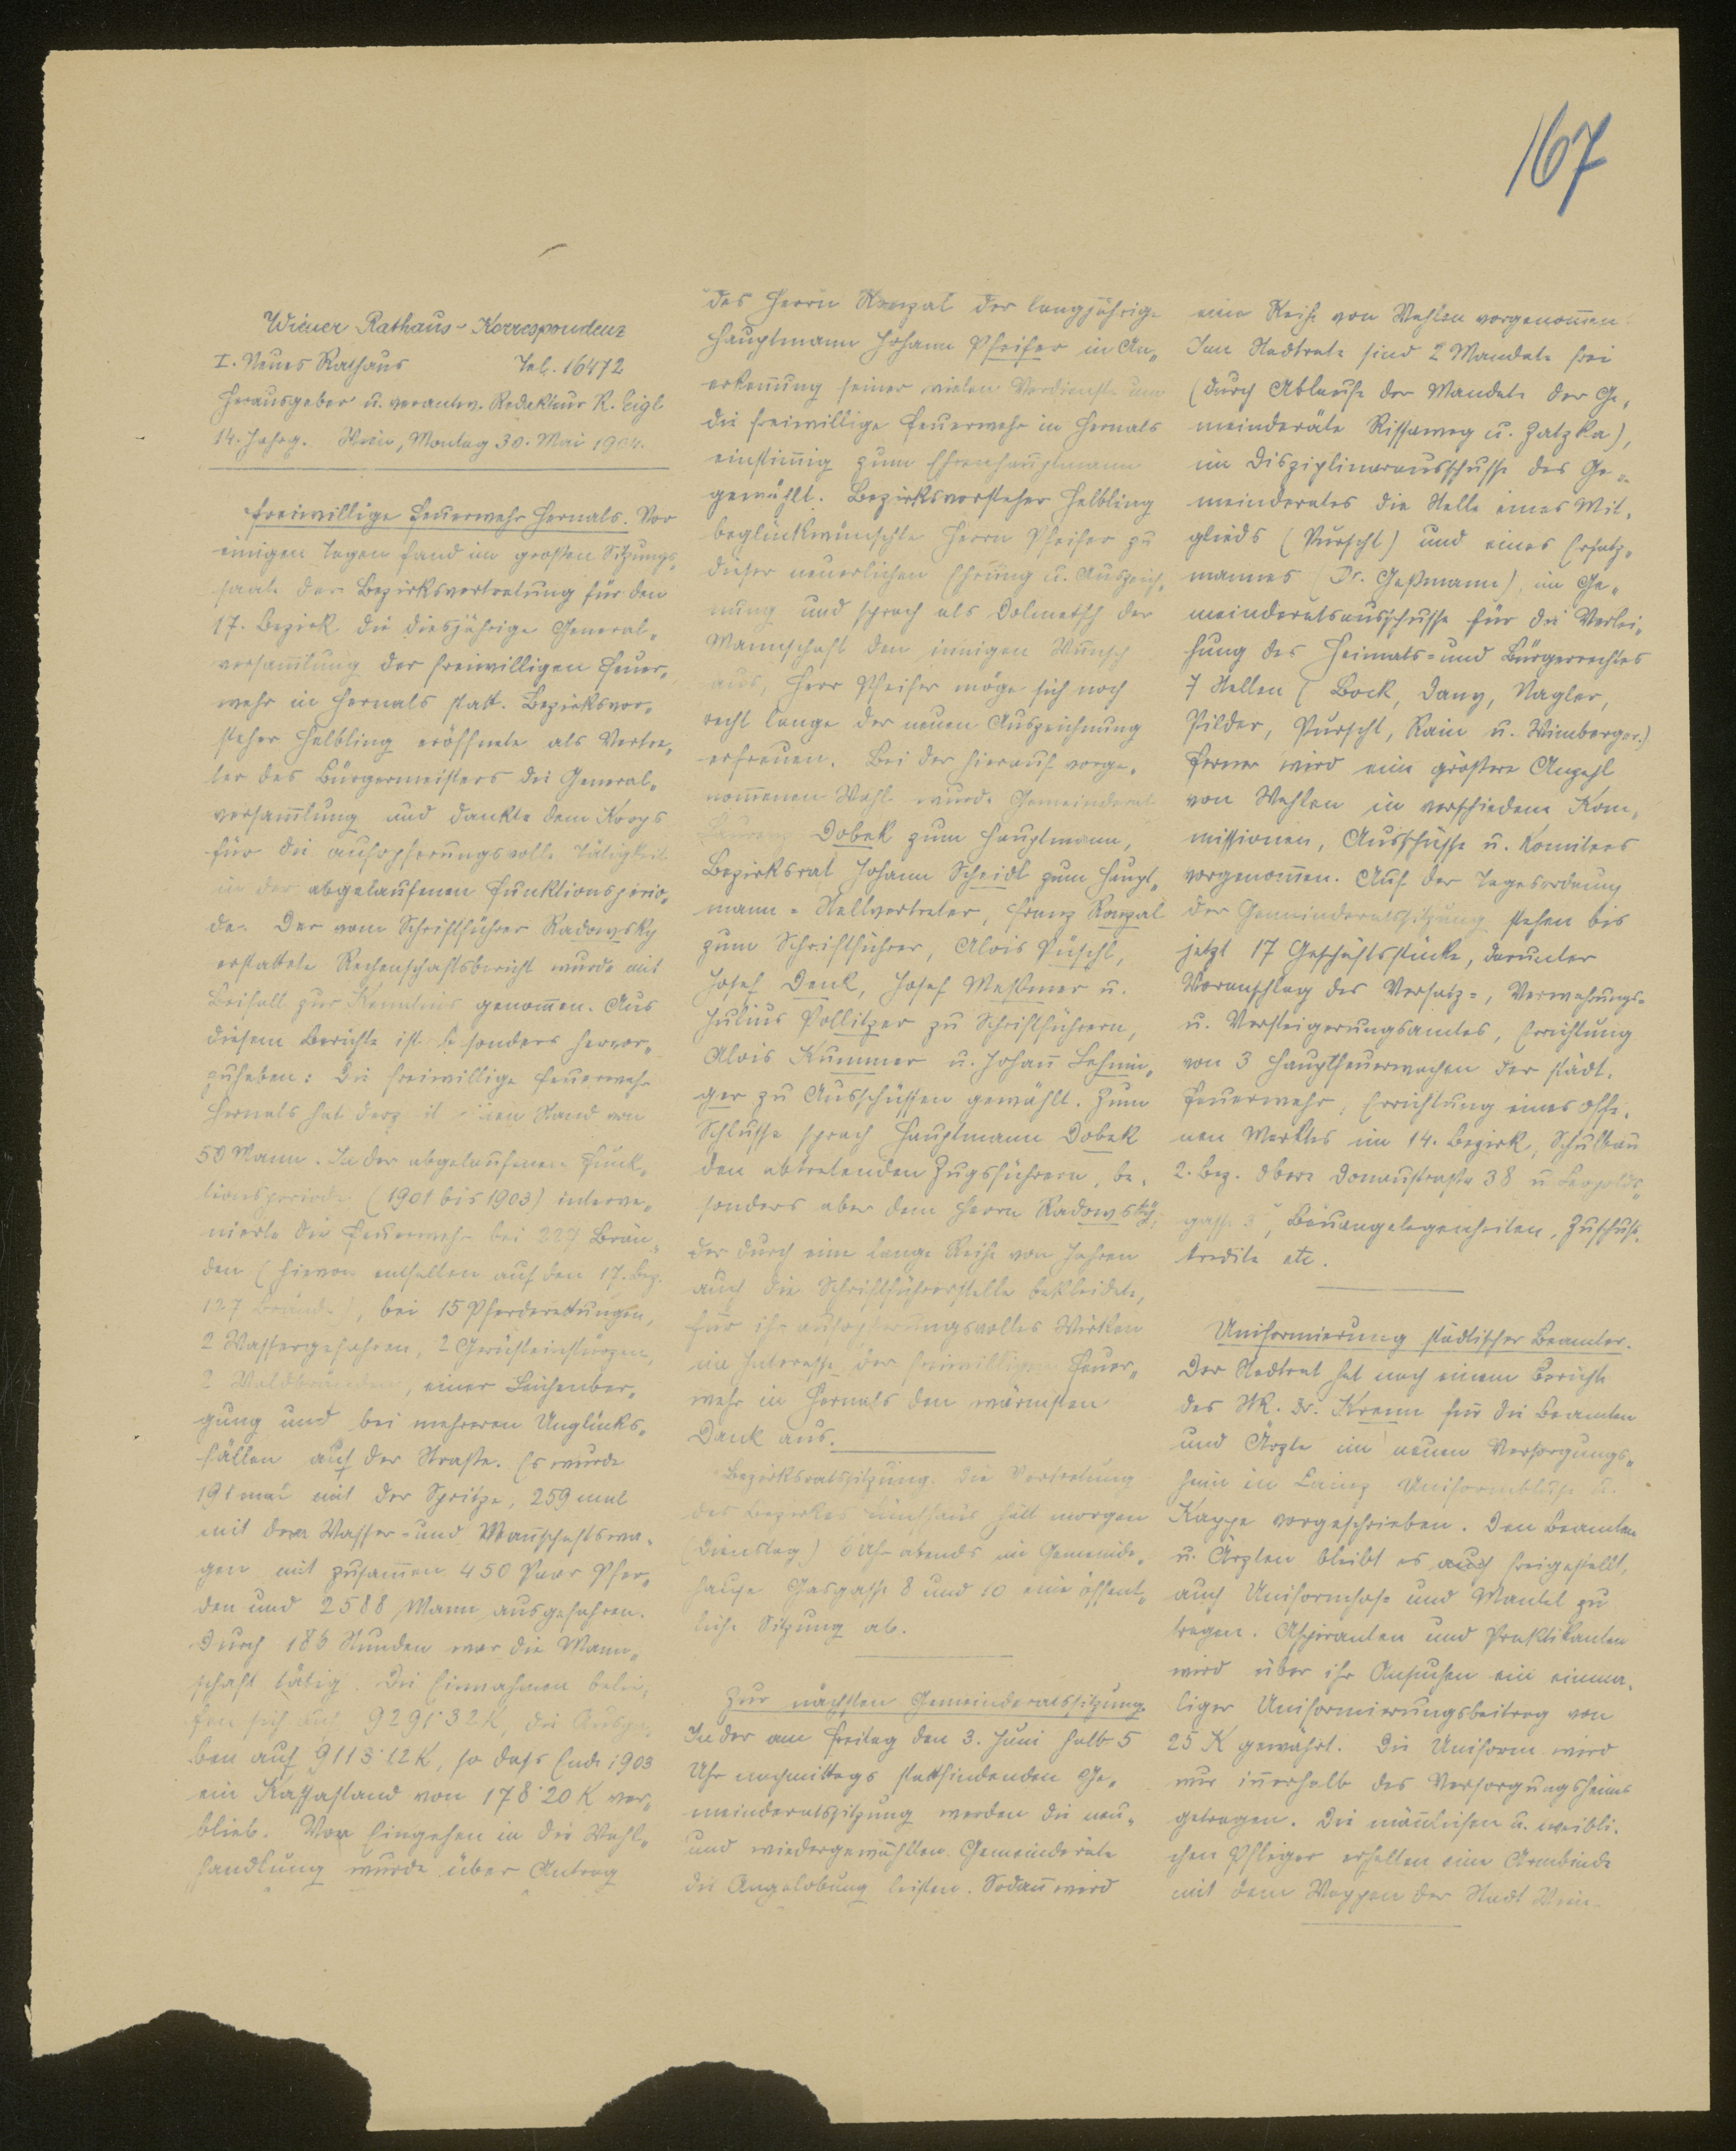 167
Wiener Rathaus-Korrespondenz
I. Neues Rathaus Tel. 16472
Herausgeber u. verantw. Redakteur R. Eigl
14. Jahrg. Wien, Montag 30. Mai 1904.
Freiwillige Feuerwehr Hernals. Vor
einigen Tagen fand im großen Sitzungs-
saale der Bezirksvertretung für den
17. Bezirk die diesjährige General-
versam̄lung der freiwilligen Feuer-
wehr in Hernals statt. Bezirksvor-
steher Helbling eröffnete als Vertre-
ter des Bürgermeisters die General-
versam̄lung und dankte dem Korps
für die aufopferungsvolle Tätigkeit
in der abgelaufenen Funktionsperio-
de. Der vom Schriftführer Radowsky
erstattete Rechenschaftsbericht wurde mit
Beifall zur Kenntnis genom̄en. Aus
diesem Berichte ist besonders hervor-
zuheben: Die freiwillige Feuerwehr
Hernals hat derzeit einen Stand von
50 Mann. In der abgelaufenen Funk-
tionsperiode (1901 bis 1903) interve-
nierte die Feuerwehr bei 229 Brän-
den (hievon entfallen auf den 17. Bez.
127 Brände), bei 15 Pferderettungen,
2 Wassergefahren, 2 Gerüsteinstürzen,
2 Waldbränden, einer Leichenber-
gung und bei mehreren Unglücks-
fällen auf der Straße. Es wurde
191 mal mit der Spritze, 259 mal
mit dem Wasser- und Man̄schaftswa-
gen mit zusam̄en 450 Paar Pfer-
den und 2588 Mann ausgefahren.
Durch 183 Stunden war die Mann-
schaft tätig. Die Einnahmen belie-
fen sich auf 9291·32 K, die Ausga-
ben auf 9113·12 K, so daß Ende 1903
ein Kassastand von 178·20 K ver-
blieb. Vor Eingehen in die Wahl-
handlung wurde über Antrag
des Herrn Konzal der langjährige
Hauptmann Johann Pfeifer in An-
erken̄ung seiner vielen Verdienste um
die freiwillige Feuerwehr in Hernals
einstim̄ig zum Ehrenhauptmann
gewählt. Bezirksvorsteher Helbling
beglückwünschte Herrn Pfeifer zu
dieser neuerlichen Ehrung u. Auszeich-
nung und sprach als Dolmetsch der
Mannschaft den innigen Wunsch
aus, Herr Pfeifer möge sich noch
recht lange der neuen Auszeichnung
erfreuen. Bei der hierauf vorge-
nom̄enen Wahl wurde Gemeinderat
Dobek zum Hauptmann,
Bezirksrat Johann Scheidl zum Haupt-
mann-Stellvertreter, Franz Konzal
zum Schriftführer, Alois Püschl,
Josef Denk, Josef Meßmer u.
Julius Pollitzer zu Schriftführern,
Alois Kummer u. Johan̄ Lehnin-
ger zu Ausschüssen gewählt. Zum
Schlusse sprach Hauptmann Dobek
den abtretenden Zugsführern, be-
sonders aber dem Herrn Radowsky,
der durch eine lange Reihe von Jahren
auch die Schriftführerstelle bekleidete,
für ihr aufopferungsvolles Wirken
im Interesse der freiwilligen Feuer-
wehr in Hernals den wärmsten
Dank aus.
Bezirksratssitzung. Die Vertretung
des Bezirkes Fünfhaus hält morgen
(Dienstag) 6 Uhr abends im Gemeinde-
hause Gasgasse 8 und 10 eine öffent-
liche Sitzung ab.
Zur nächsten Gemeinderatssitzung.
In der am Freitag den 3. Juni halb 5
Uhr nachmittags stattfindenden Ge-
meinderatssitzung werden die neu-
und wiedergewählten Gemeinderäte
die Angelobung leisten. Sodan̄ wird
eine Reihe von Wahlen vorgenom̄en.
Im Stadtrate sind 2 Mandate frei
(durch Ablauf der Mandate der Ge-
meinderäte Rissaweg u. Zatzka),
im Disziplinarausschusse des Ge-
meinderates die Stelle eines Mit-
glieds (Purscht) und eines Ersatz-
mannes (Dr. Geßmann), im Ge-
meinderatsausschusse für die Verlei-
hung des Heimats- und Bürgerrechtes
7 Stellen (Bock, Dany, Nagler,
Pilder, Purscht, Rain u. Wimberger.)
Ferner wird eine größere Anzahl
von Wahlen in verschiedene Kom-
missionen, Ausschüsse u. Komitees
vorgenom̄en. Auf der Tagesordnung
der Gemeinderatssitzung stehen bis
jetzt 17 Geschäftsstücke, darunter
Voranschlag des Versatz-, Verwahrungs-
u. Versteigerungsamtes, Errichtung
von 3 Hauptfeuerwachen der städt.
Feuerwehr, Errichtung eines offe-
nen Marktes im 14. Bezirk, Schulbau
2. Bez. Obere Donaustraße 38 u. Leopolds-
gasse 3, Bauangelegenheiten, Zuschuß-
kredite etc.
Uniformierung städtischer Beamter.
Der Stadtrat hat nach einem Berichte
des StR. Dr. Krenn für die Beamten
und Ärzte im neuen Versorgungs-
heim in Lainz Uniformbluse u.
Kappe vorgeschrieben. Den Beamten
u. Ärzten bleibt es auch freigestellt,
auch Uniformhose und Mantel zu
tragen. Aspiranten und Praktikanten
wird über ihr Ansuchen ein einma-
liger Uniformierungsbeitrag von
25 K gewährt. Die Uniform wird
nur in̄erhalb des Versorgungsheims
getragen. Die män̄lichen u. weibli-
chen Pfleger erhalten eine Armbinde
mit dem Wappen der Stadt Wien.